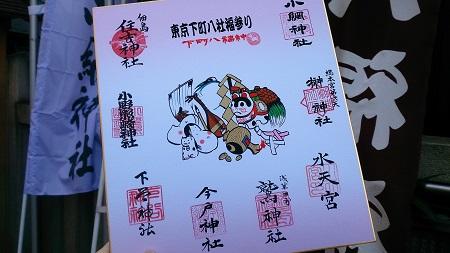 東京下町八社福参り
下町八福神
小網神社
第六天
榊神社
水天宮
鷲神社
今戸神社
下谷神社
小野照崎神社
佃島
住吉神社
小網神社